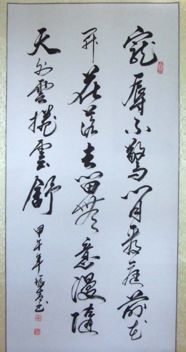 宠辱不惊闲看庭前花
开花落去留无意漫随
天外云卷云舒
甲午年